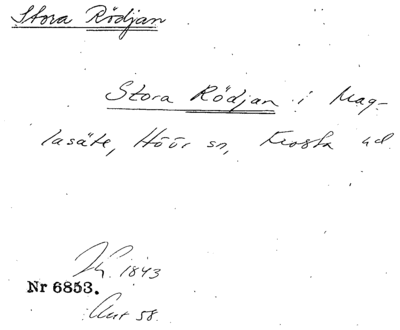 Stora Rödjan
Stora Rödjan i Mag-
lasäte, Höör sn, Frosta hd
1843
Nr 6853.
58